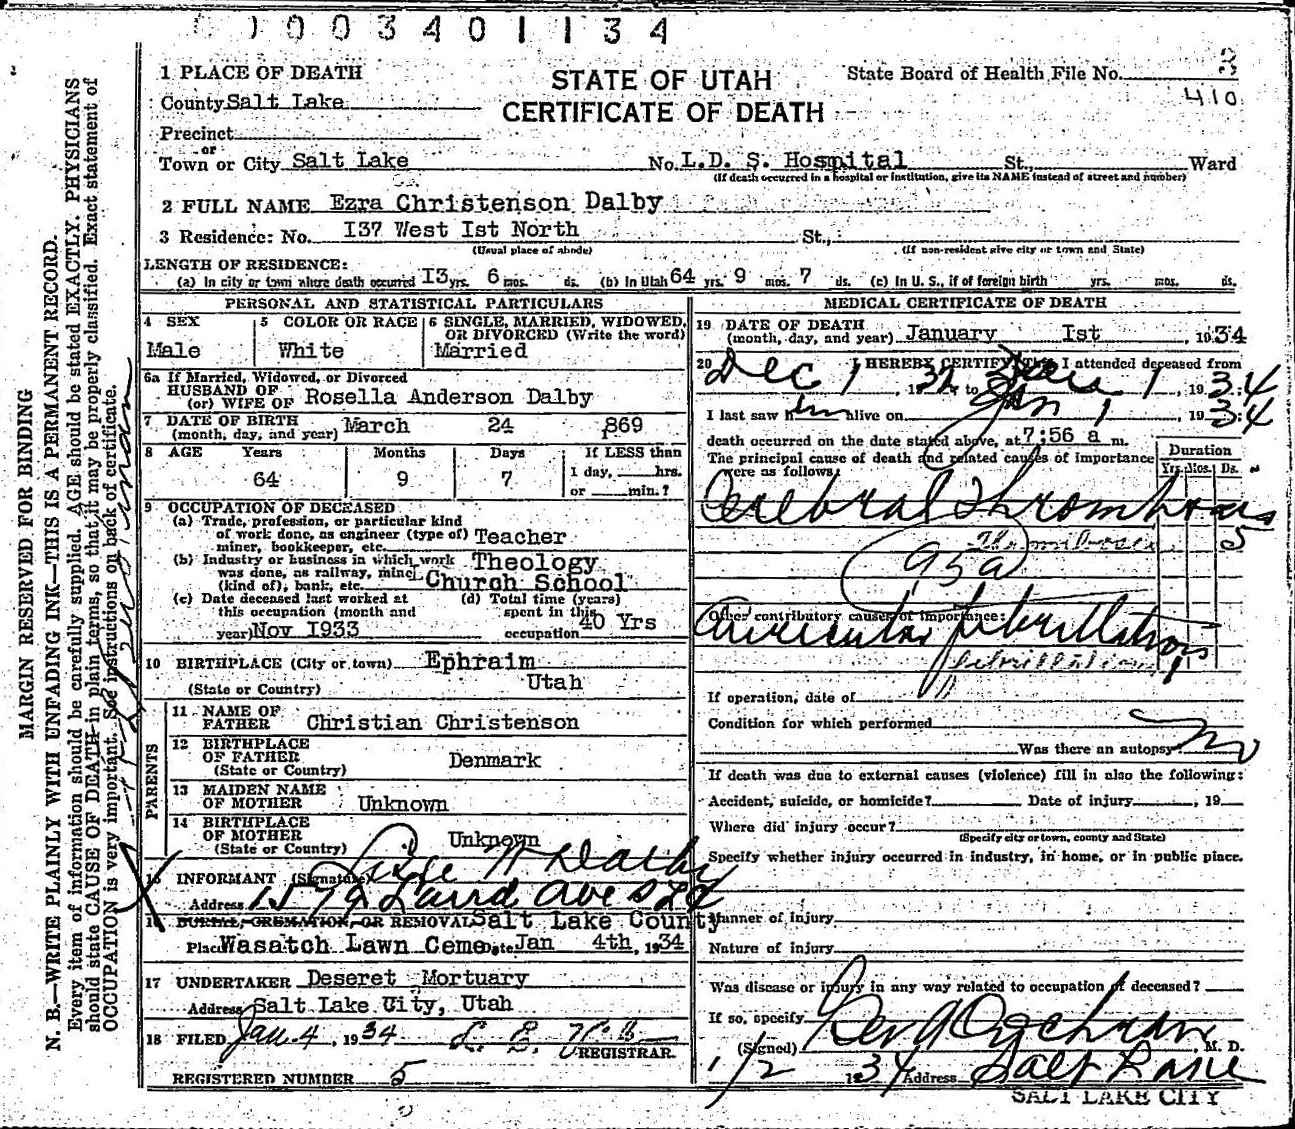 1003401134
1 PLACE OF DEATH
STATE OF UTAH
CERTIFICATE OF DEATH
State Board of Health File No. 3
410
County Salt Lake
Precinct
or
Town or City Salt Lake No. L.D. S. Hospital St., Ward
(If death occurred in a hospital or institution, give its NAME instead of street and number)
2 FULL NAME Ezra Christenson Dalby
3 Residence: No. I37 West Ist North St.,
(Usual place of abode) (If non-resident give city or town and State)
LENGTH OF RESIDENCE:
(a) In city or town where death occurred I3 yrs. 6 mos. ds. (b) In Utah 64 yrs. 9 mos. 7 ds. (c) In U. S., if of foreign birth yrs. mos. ds.
PERSONAL AND STATISTICAL PARTICULARS
4 SEX
Male
5 COLOR OR RACE
White
6 SINGLE, MARRIED, WIDOWED, OR DIVORCED (Write the word)
Married
6a If Married, Widowed, or Divorced
HUSBAND OF
(or) WIFE OF Rosella Anderson Dalby
7 DATE OF BIRTH
(month, day, and year) March 24 1869
8 AGE Years Months Days If LESS than
64 9 7 1 day, hrs.
or min.?
9 OCCUPATION OF DECEASED
(a) Trade, profession, or particular kind
of work done, as engineer (type of) Teacher
miner, bookkeeper, etc.
(b) Industry or business in which work Theology
was done, as railway, mine
(kind of), bank, etc. Church School
(c) Date deceased last worked at
this occupation (month and
year) Nov I933
(d) Total time (years)
spent in this
occupation 40 Yrs
10 BIRTHPLACE (City or town) Ephraim
(State or Country) Utah
PARENTS
11 NAME OF
FATHER Christian Christenson
12 BIRTHPLACE
OF FATHER
(State or Country) Denmark
13 MAIDEN NAME
OF MOTHER Unknown
14 BIRTHPLACE
OF MOTHER
(State or Country) Unknown
INFORMANT (Signature)
Address Laird Ave SLC
BURIAL, CREMATION, OR REMOVAL Salt Lake County
Place Wasatch Lawn Ceme Date Jan 4th, 1934
17 UNDERTAKER Deseret Mortuary
Address Salt Lake City, Utah
18 FILED Jan 4, 1934
REGISTRAR.
REGISTERED NUMBER 5
MEDICAL CERTIFICATE OF DEATH
19 DATE OF DEATH
(month, day, and year) January Ist, 1934
20 I HEREBY CERTIFY That I attended deceased from
Dec 1, 1932 to Jan 1, 1934
I last saw him alive on Jan 1 1934
death occurred on the date stated above, at 7:56 a m.
The principal cause of death and related causes of importance
were as follows:
Duration
Yrs. Mos. Ds.
Cerebral Thrombosis
5
Thrombosis
Other contributory causes of importance:
Auricular fibrillation
fibrillation
If operation, date of
Condition for which performed
Was there an autopsy? no
If death was due to external causes (violence) fill in also the following:
Accident, suicide, or homicide? Date of injury, 19
Where did injury occur?
(Specify city or town, county and State)
Specify whether injury occurred in industry, in home, or in public place.
Manner of injury
Nature of injury
Was disease or injury in any way related to occupation of deceased?
If so, specify
(Signed) M. D.
1/2 1934 Address Salt Lake
SALT LAKE CITY
MARGIN RESERVED FOR BINDING
N. B.—WRITE PLAINLY WITH UNFADING INK—THIS IS A PERMANENT RECORD.
Every item of information should be carefully supplied. AGE should be stated EXACTLY. PHYSICIANS
should state CAUSE OF DEATH in plain terms, so that it may be properly classified. Exact statement of
OCCUPATION is very important. See instructions on back of certificate.